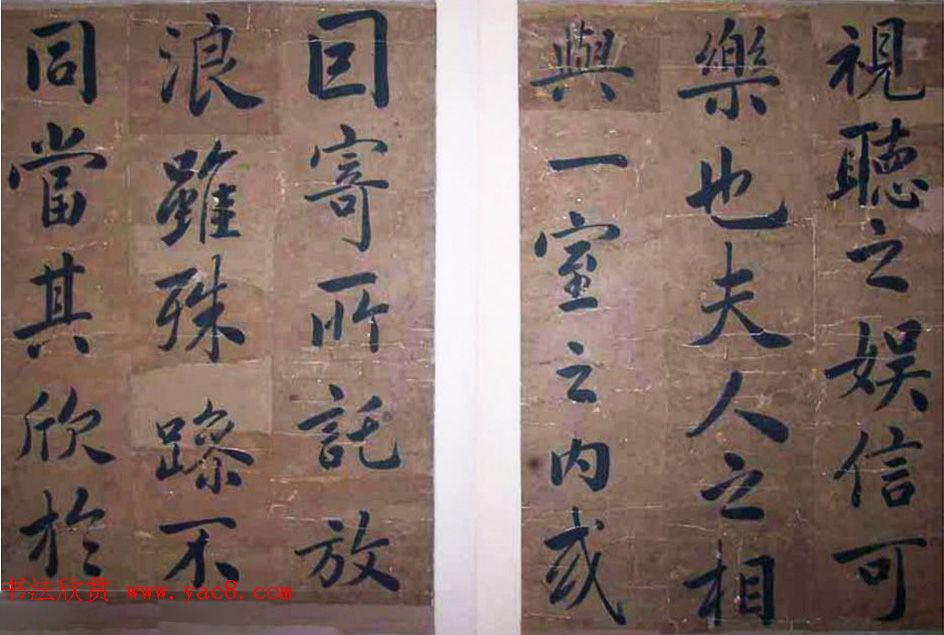 視聽之娛信可
樂也夫人之相
與一室之內或
因寄所託放
浪雖殊躁不
同當其欣於
书法欣赏 www.yac8.com